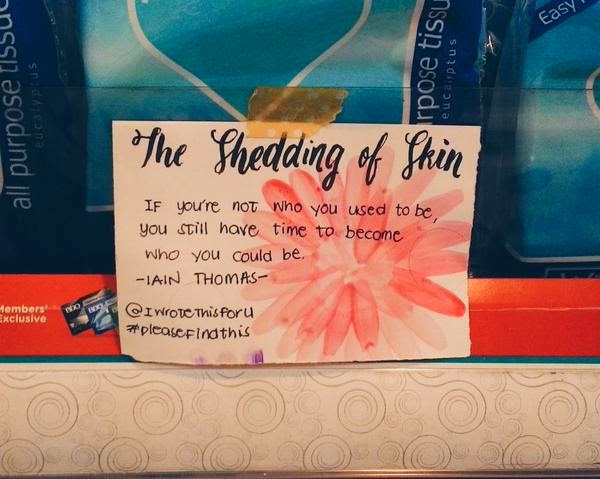 all purpose tissue
eucalyptus
rpose tissu
eucalyptus
Easy
The Shedding of Skin
IF you're not who you used to be,
you still have time to become
who you could be.
-IAIN THOMAS-
@IwroteThisForU
#pleaseFindthis
Members'
Exclusive
BDO
BDO